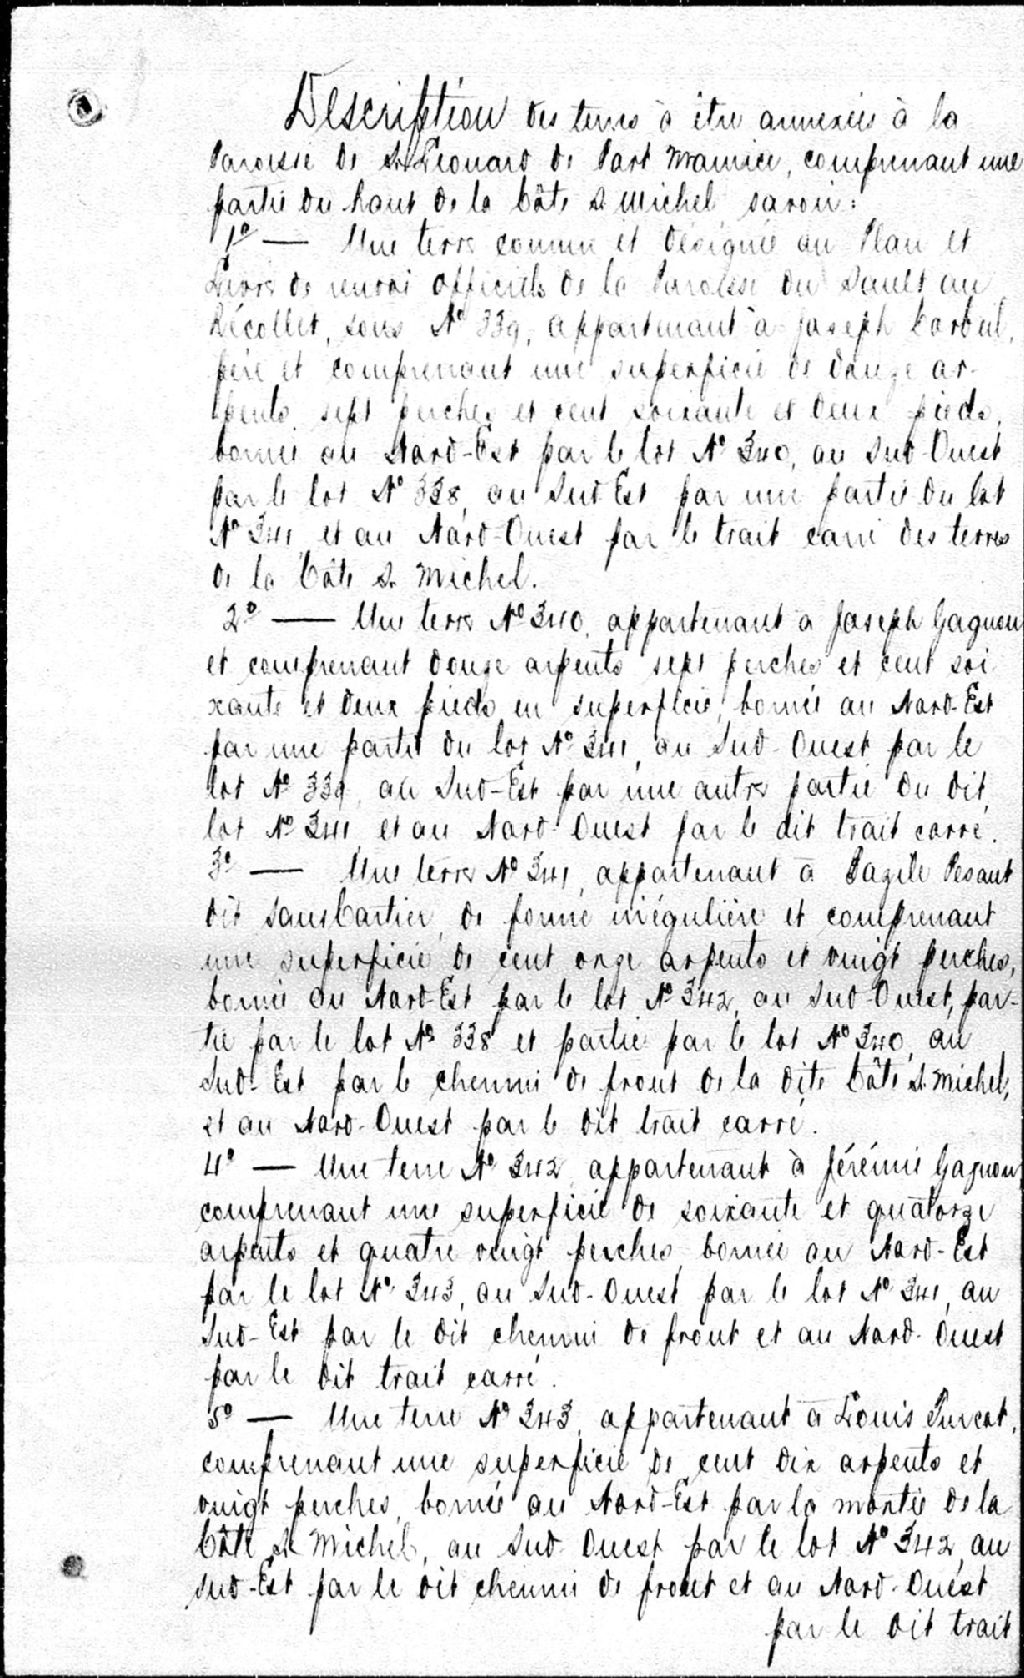 Description des terres à être annexées à la
Paroisse de St Léonard de Port Maurice, comprenant une
partie du haut de la Côte St Michel savoir:
1º — Une terre connue et désignée au Plan et
Livre de renvoi officiels de la Paroisse du Sault au
Récollet, sous Nº 339, appartenant à Joseph Corbeil,
père et comprenant une superficie de douze ar-
pents sept perches et cent soixante et deux pieds,
bornée au Nord-Est par le lot Nº 340, au Sud-Ouest
par le lot Nº 338, au Sud Est par une partie du lot
Nº 341, et au Nord-Ouest par le trait carré des terres
de la Côte St Michel.
2º — Une terre Nº 340, appartenant à Joseph Gagnon
et comprenant douze arpents sept perches et cent soi
xante et deux pieds en superficie, bornée au Nord-Est
par une partie du lot Nº 341, au Sud-Ouest par le
lot Nº 339, au Sud-Est par une autre partie du dit
lot Nº 341, et au Nord-Ouest par le dit trait carré.
3º — Une terre Nº 341, appartenant à Bazile Pesant
dit Sanscartier, de forme irrégulière et comprenant
une superficie de cent onze arpents et vingt perches,
bornée au Nord-Est par le lot Nº 342, au Sud-Ouest, par-
tie par le lot Nº 338 et partie par le lot Nº 340, au
Sud-Est par le chemin de front de la dite Côte St Michel,
et au Nord-Ouest par le dit trait carré.
4º — Une terre Nº 342, appartenant à Jérémie Gagnon,
comprenant une superficie de soixante et quatorze
arpents et quatre vingt perches, bornée au Nord-Est
par le lot Nº 343, au Sud-Ouest par le lot Nº 341, au
Sud-Est par le dit chemin de front et au Nord-Ouest
par le dit trait carré.
5º — Une terre Nº 343, appartenant à Louis
comprenant une superficie de cent dix arpents et
vingt perches, bornée au Nord-Est par la montée de la
Côte St Michel, au Sud-Ouest par le lot Nº 342, au
Sud-Est par le dit chemin de front et au Nord-Ouest
par le dit trait